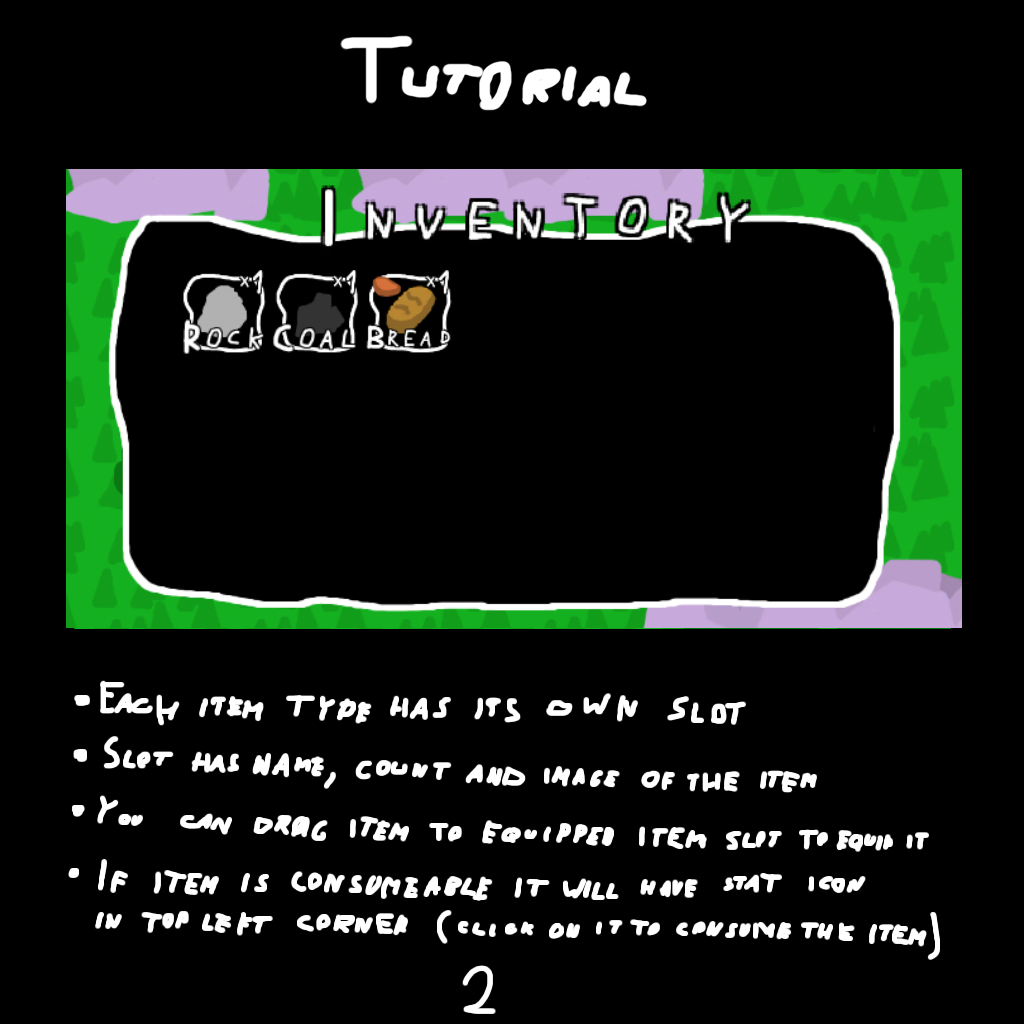 TUTORIAL
INVENTORY
x•1 x•1 x•1
ROCK COAL BREAD
• EACH ITEM TYPE HAS ITS OWN SLOT
• SLOT HAS NAME, COUNT AND IMAGE OF THE ITEM
• YOU CAN DRAG ITEM TO EQUIPPED ITEM SLOT TO EQUIP IT
• IF ITEM IS CONSUMEABLE IT WILL HAVE STAT ICON
IN TOP LEFT CORNER (CLICK ON IT TO CONSUME THE ITEM)
2